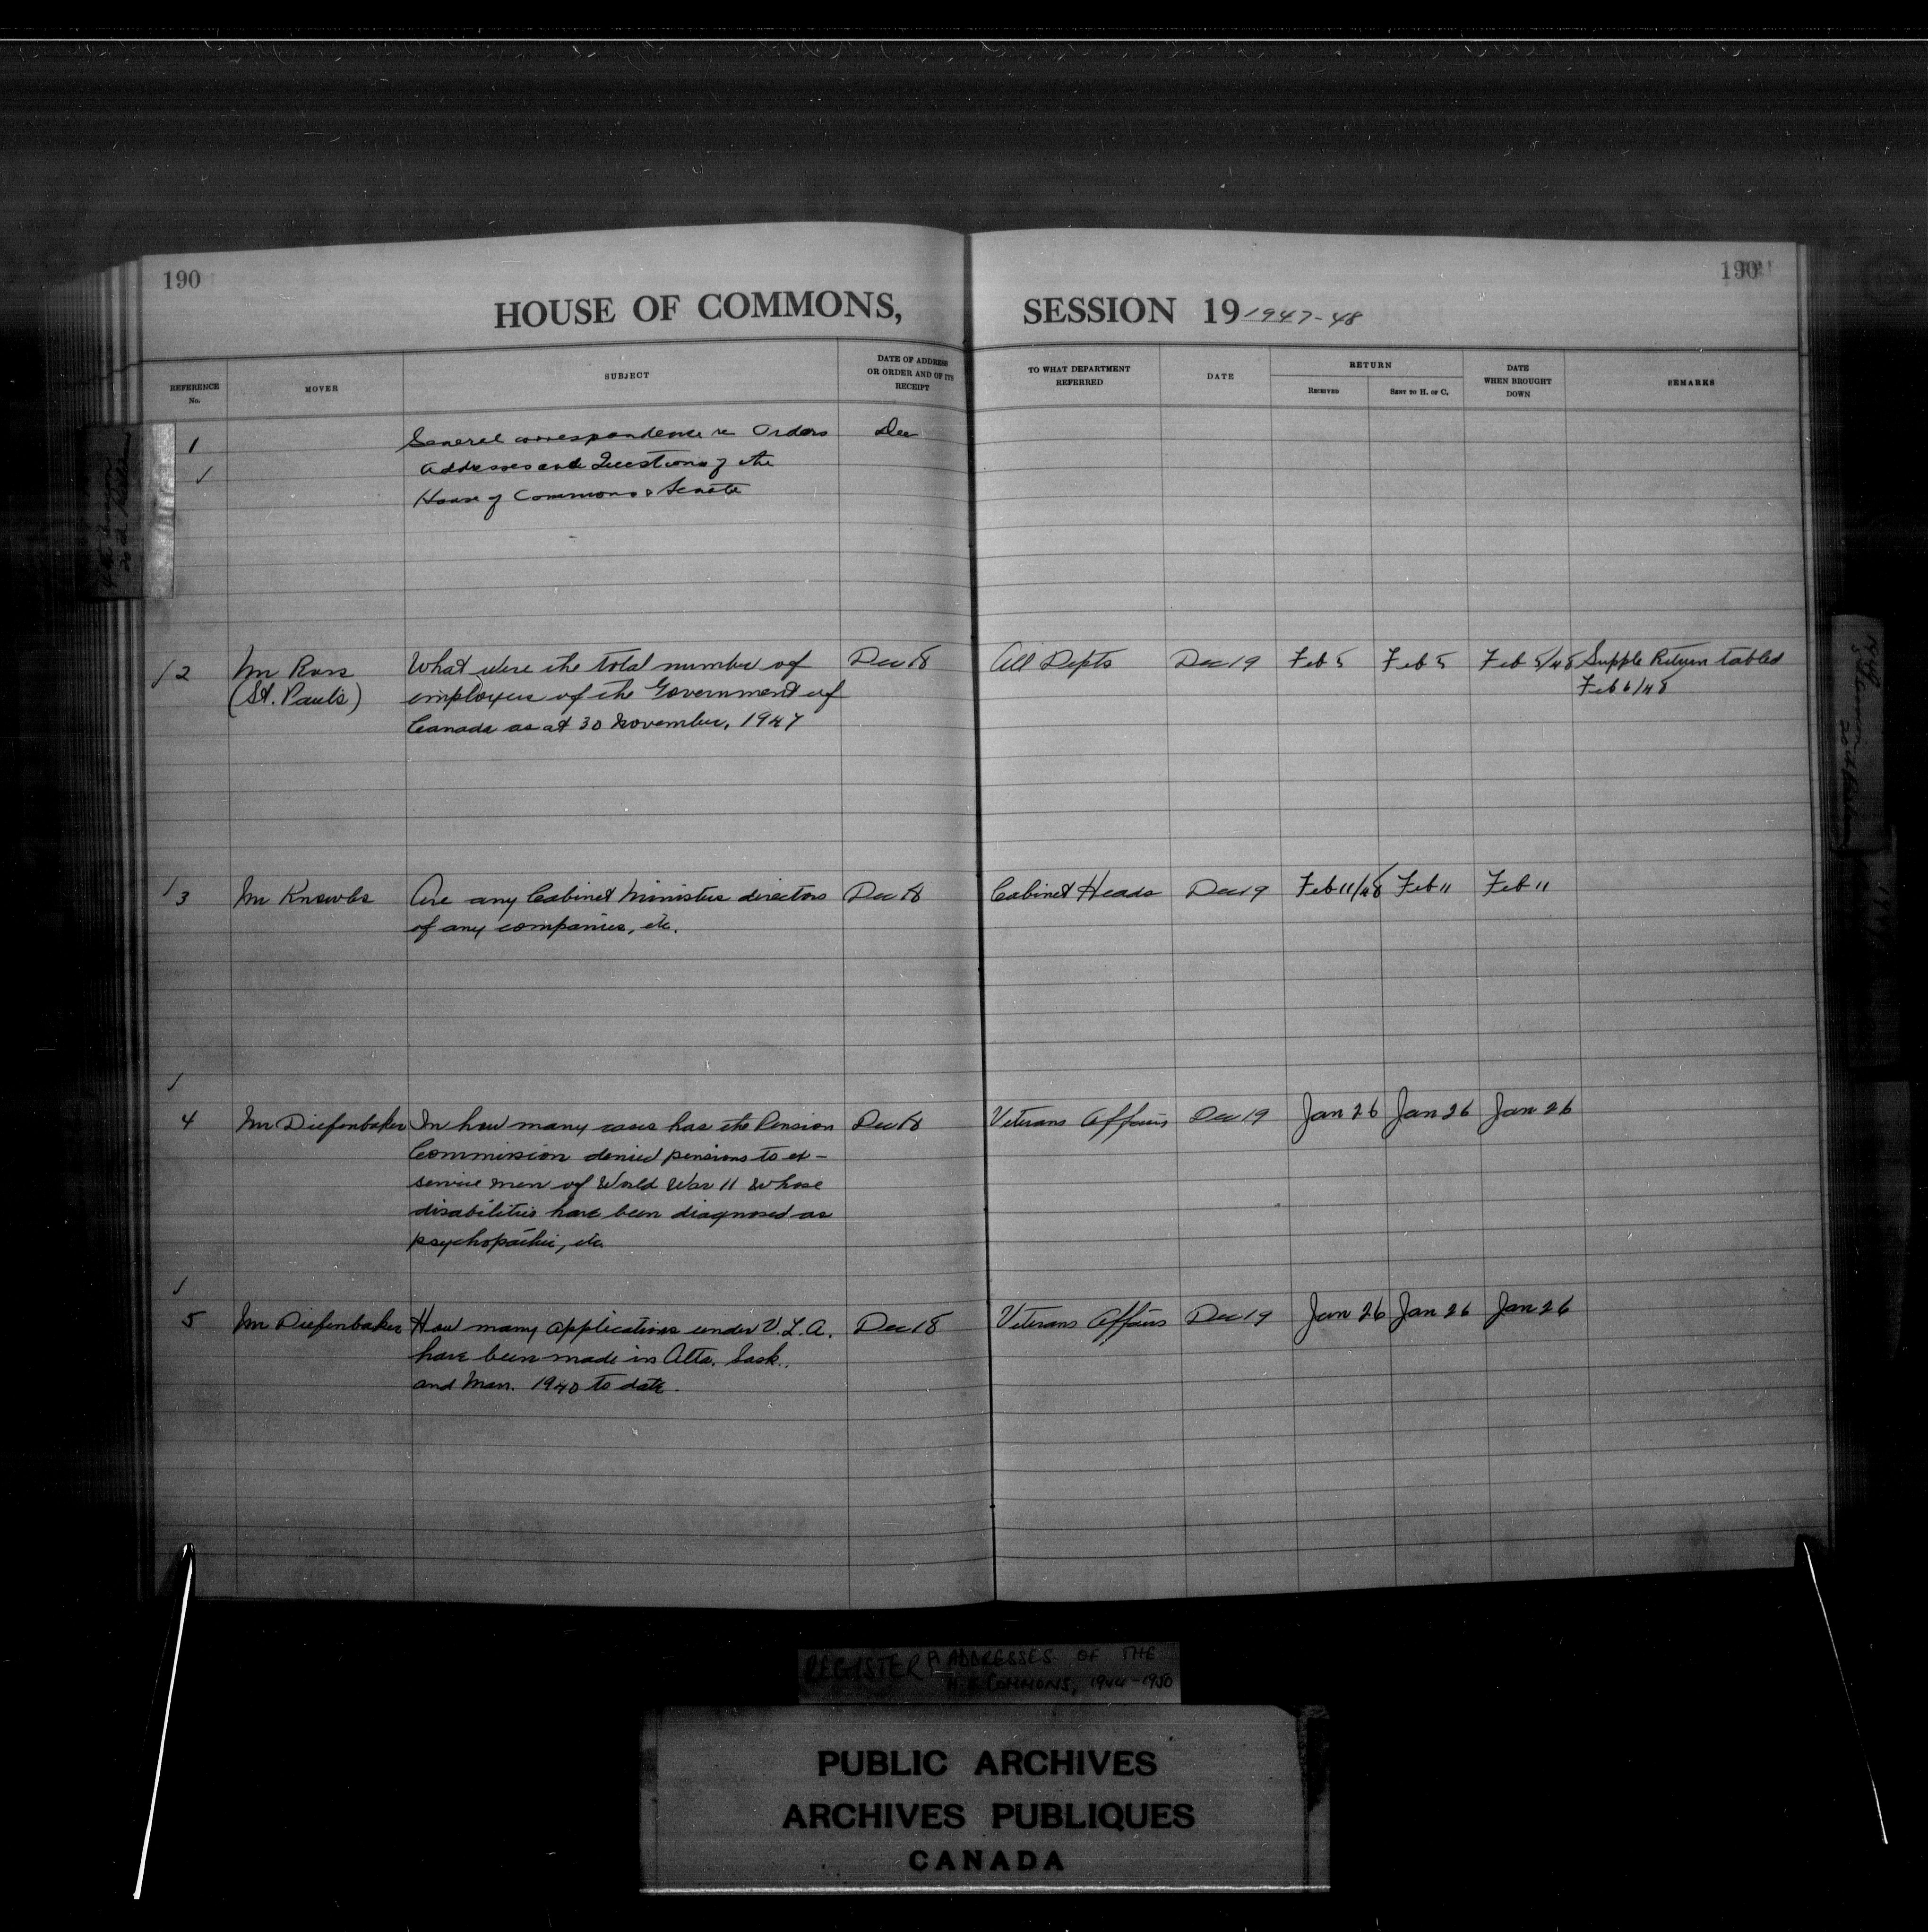 190
190
HOUSE OF COMMONS,
SESSION 19 1947-48
REFERENCE
No.
MOVER
SUBJECT
DATE OF ADDRESS
OR ORDER AND OF ITS
RECEIPT
TO WHAT DEPARTMENT
REFERRED
DATE
RETURN
RECEIVED
SENT TO H. OF C.
DATE
WHEN BROUGHT
DOWN
REMARKS
1
General correspondence re Orders
Dec
Addresses and Questions of the
House of Commons & Senate
2 Mr Ross What were the total number of Dec 18 All Depts Dec 19 Feb 5 Feb 5 Feb 5/48 Supple Return tabled
(St. Paul's) employees of the Government of Feb 6/48
Canada as at 30 November, 1947
3 Mr Knowles Are any Cabinet Ministers directors Dec 18 Cabinet Heads Dec 19 Feb 11/48 Feb 11 Feb 11
of any companies, etc.
4 Mr Diefenbaker In how many cases has the Pension Dec 18 Veterans Affairs Dec 19 Jan 26 Jan 26 Jan 26
Commission denied pensions to ex-
service men of World War 11 whose
disabilities have been diagnosed as
psychopathic, etc
5 Mr Diefenbaker How many applications under V.L.A. Dec 18 Veterans Affairs Dec 19 Jan 26 Jan 26 Jan 26
have been made in Alta. Sask.
and Man. 1940 to date.
REGISTER ADDRESSES OF THE
COMMONS, 1944-1950
PUBLIC ARCHIVES
ARCHIVES PUBLIQUES
CANADA